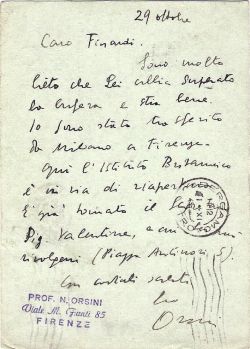 29 ottobre
Caro Finardi.
Sono molto
lieto che Lei abbia superato
la bufera e stia bene.
Io sono stato trasferito
da Milano a Firenze.
Qui l'Istituto Britannico
è in via di riapertura
È già tornato il
Sig. Valentine, e a
rivolgersi (Piazza Antinori 5).
Con cordiali saluti
Suo
Orsini
PROF. N. ORSINI
Viale M. Fanti 85
FIRENZE